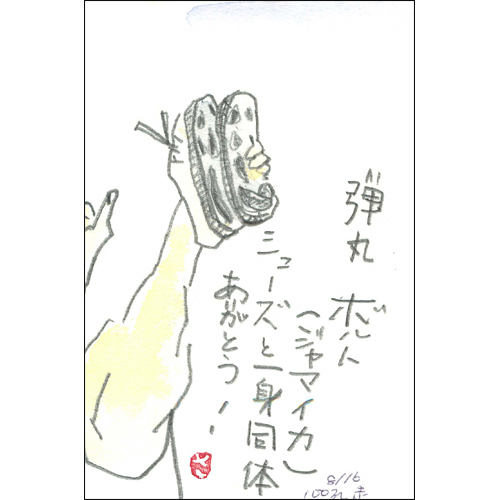 弾丸 ボルト
(ジャマイカ)
シューズと一身同体
あがとう!!
8/16
100m走